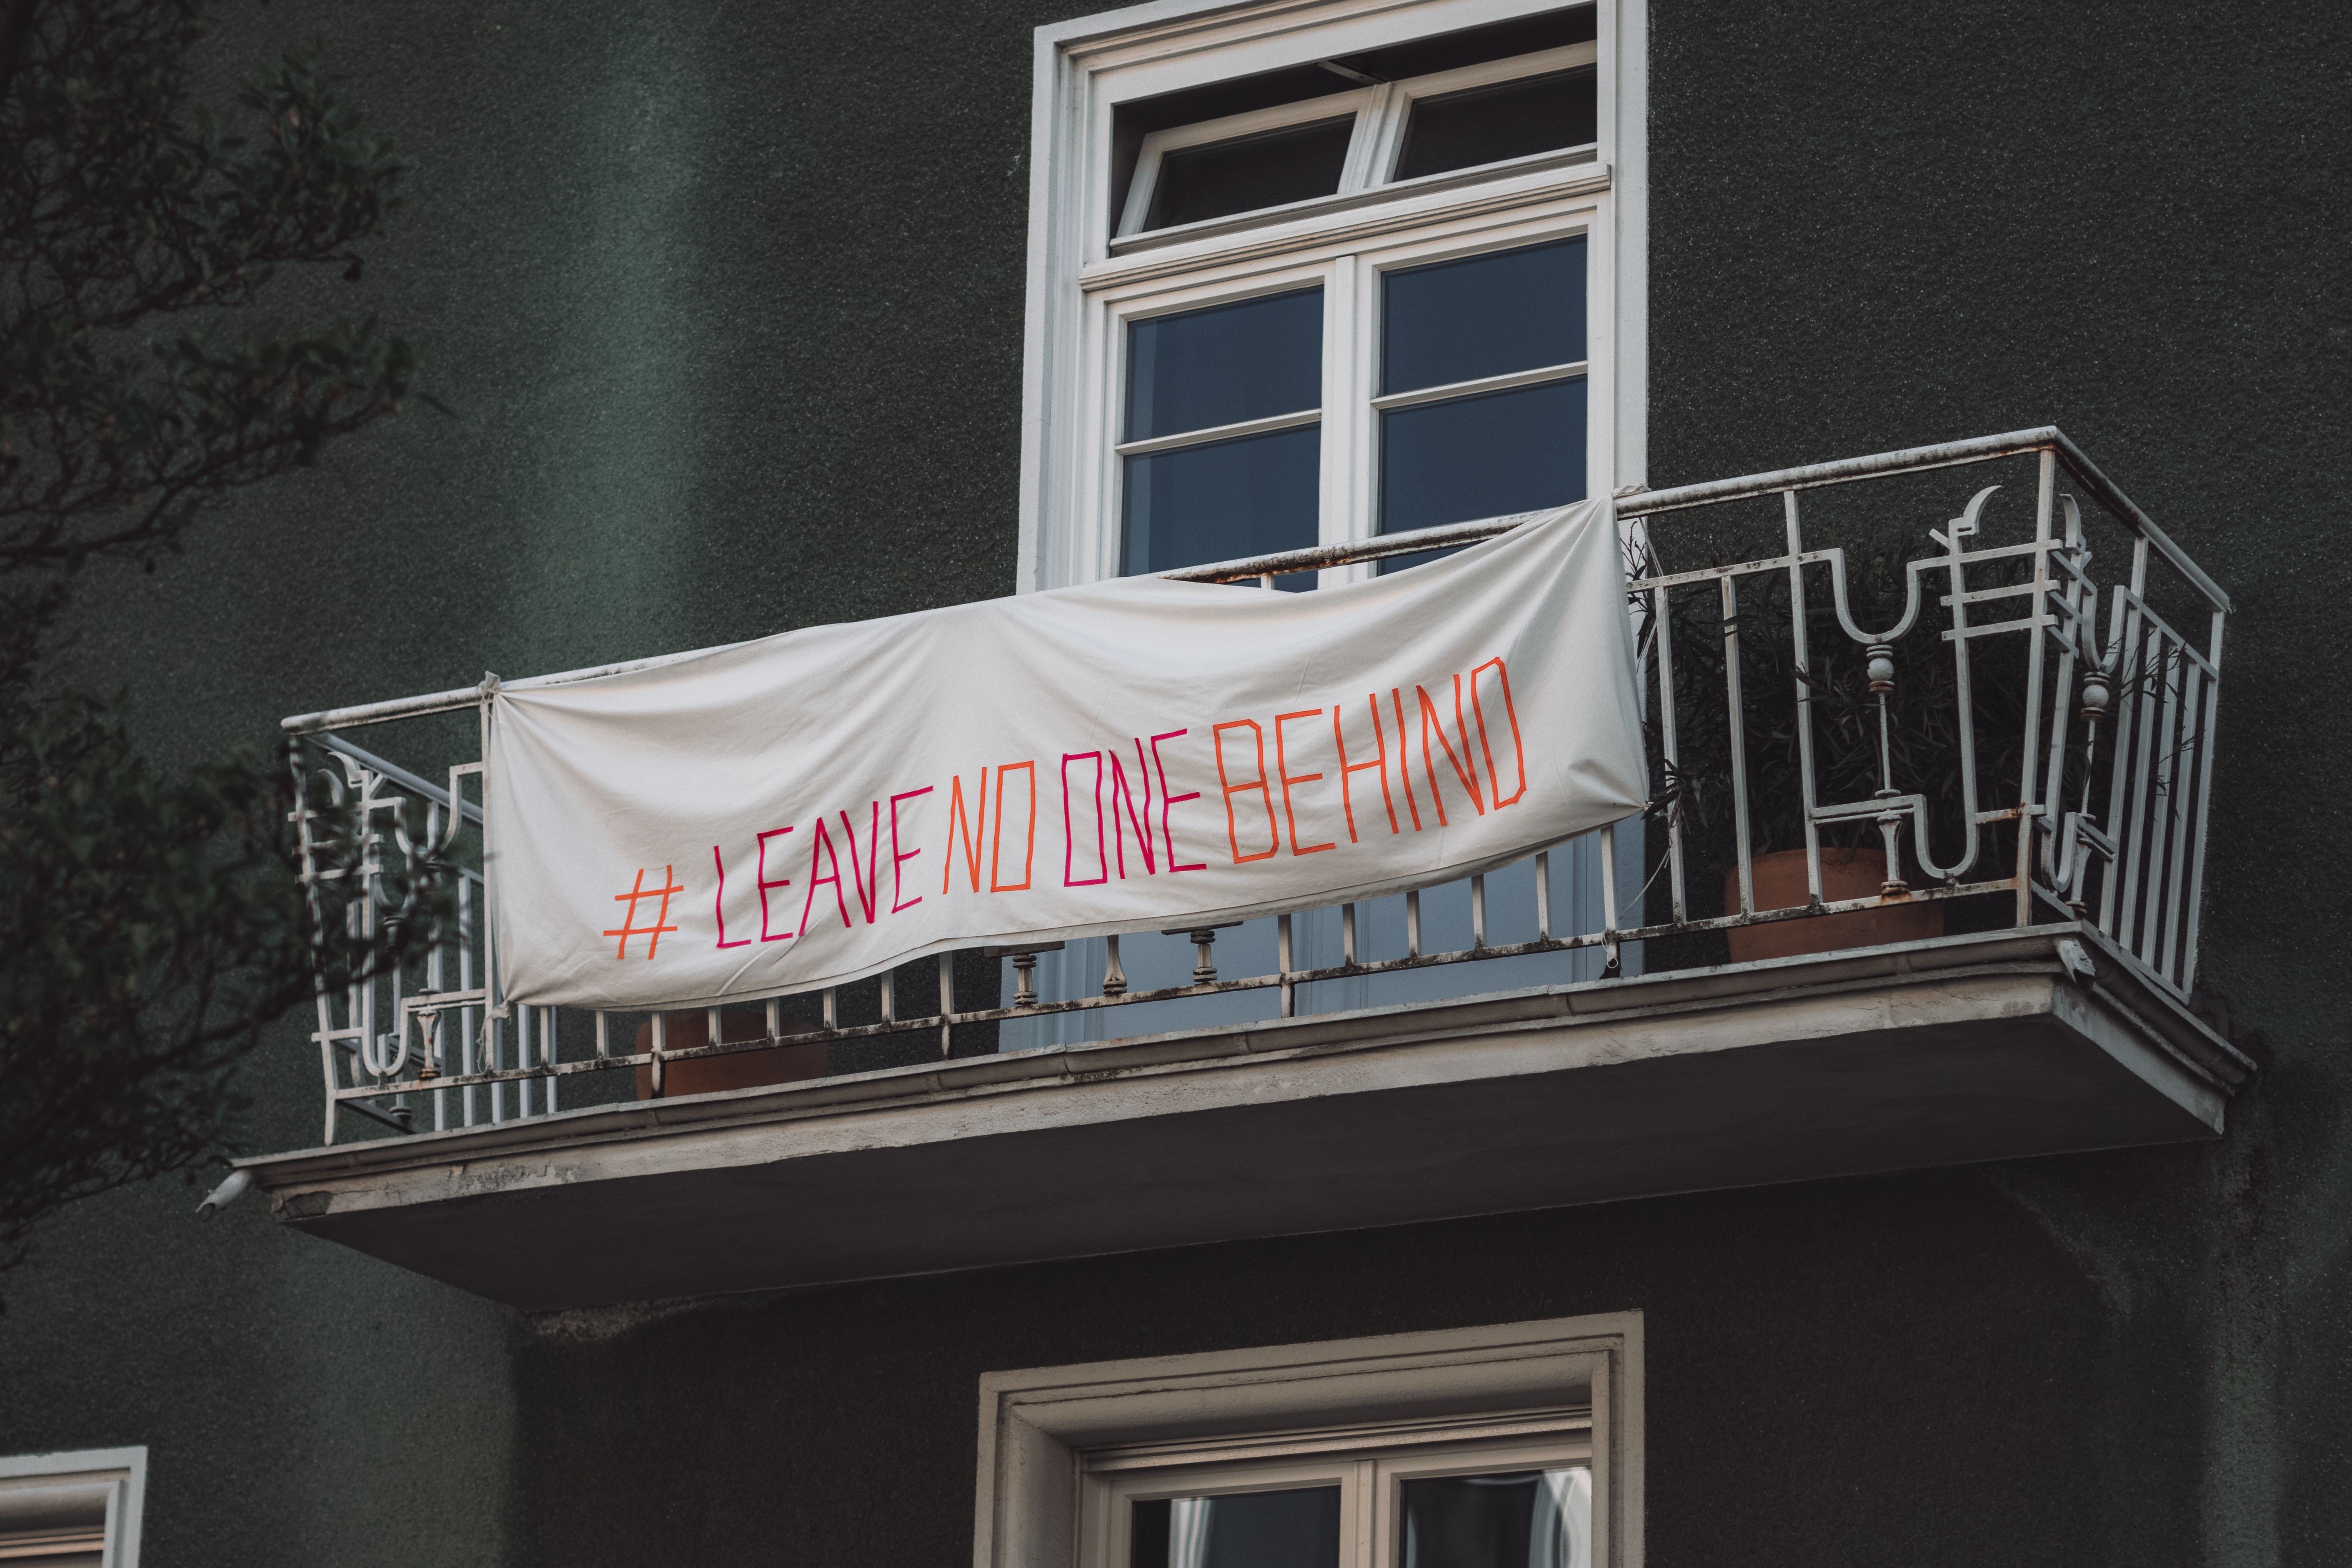 # LEAVE NO ONE BEHIND